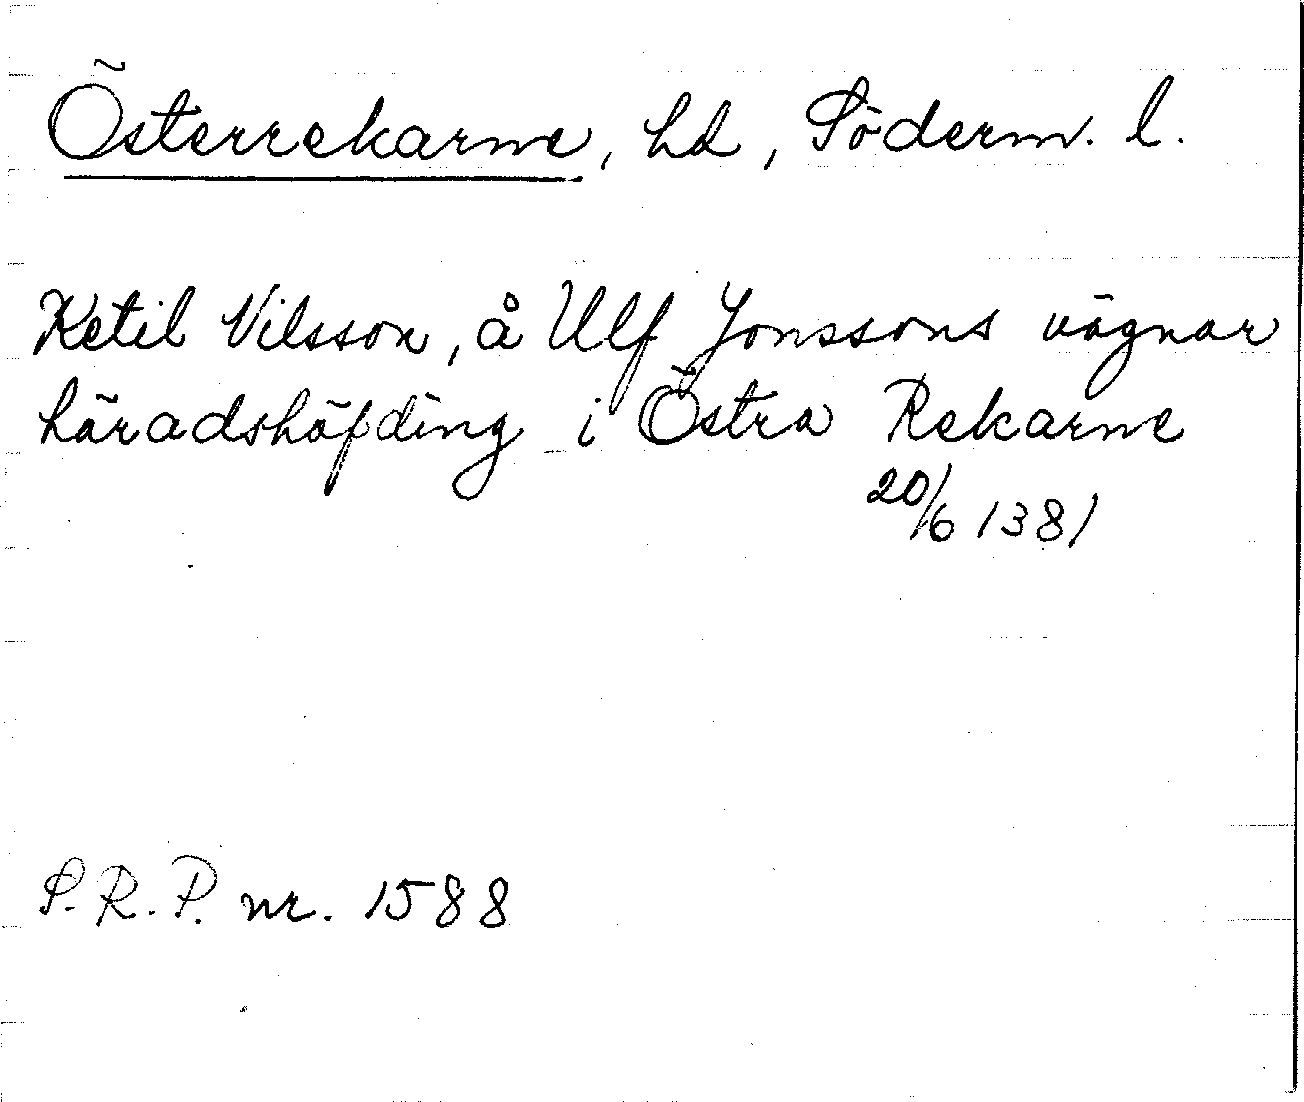 Österrekarne, hd, Söderm. l.
Ketil Nilsson, å Ulf Jonssons vägnar
häradshöfding i Östra Rekarne
20/6 1381
S.R.P. nr. 1588